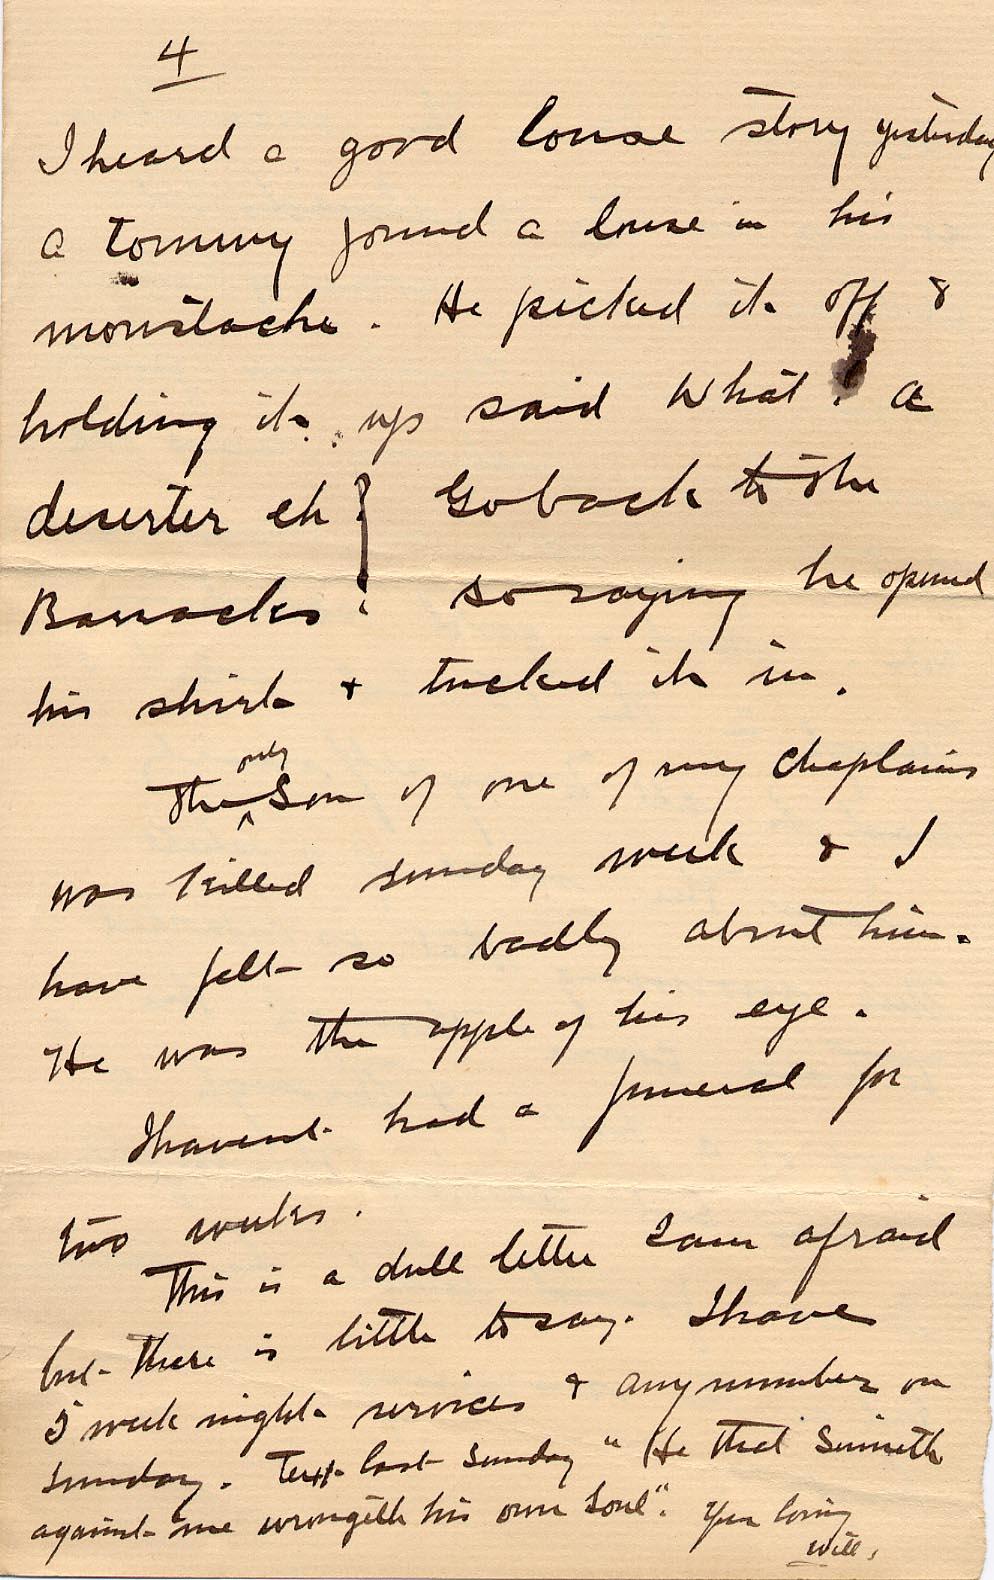 4
I heard a good louse story yesterday
a tommy found a louse in his
moustache. He picked it off &
holding it up said What! a
deserter eh? Go back to the
Barracks! so saying he opened
his shirt & tucked it in.
only
The son of one of my chaplains
was killed sunday week & I
have felt so badly about him.
He was the apple of his eye.
I havent had a funeral for
two weeks.
This is a dull letter I am afraid
but there is little to say. I have
5 week night services & any number on
sunday. Text last sunday "He that sinneth
against me wrongeth his own soul". Your loving
Will.